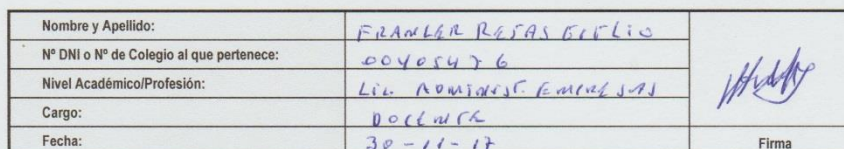 Nombre y Apellido: FRANLER
Nº DNI o Nº de Colegio al que pertenece: 00405476
Nivel Académico/Profesión: Lic. ADMINIST. EMPRESAS
Cargo: DOCENTE
Fecha: 30-11-17
Firma